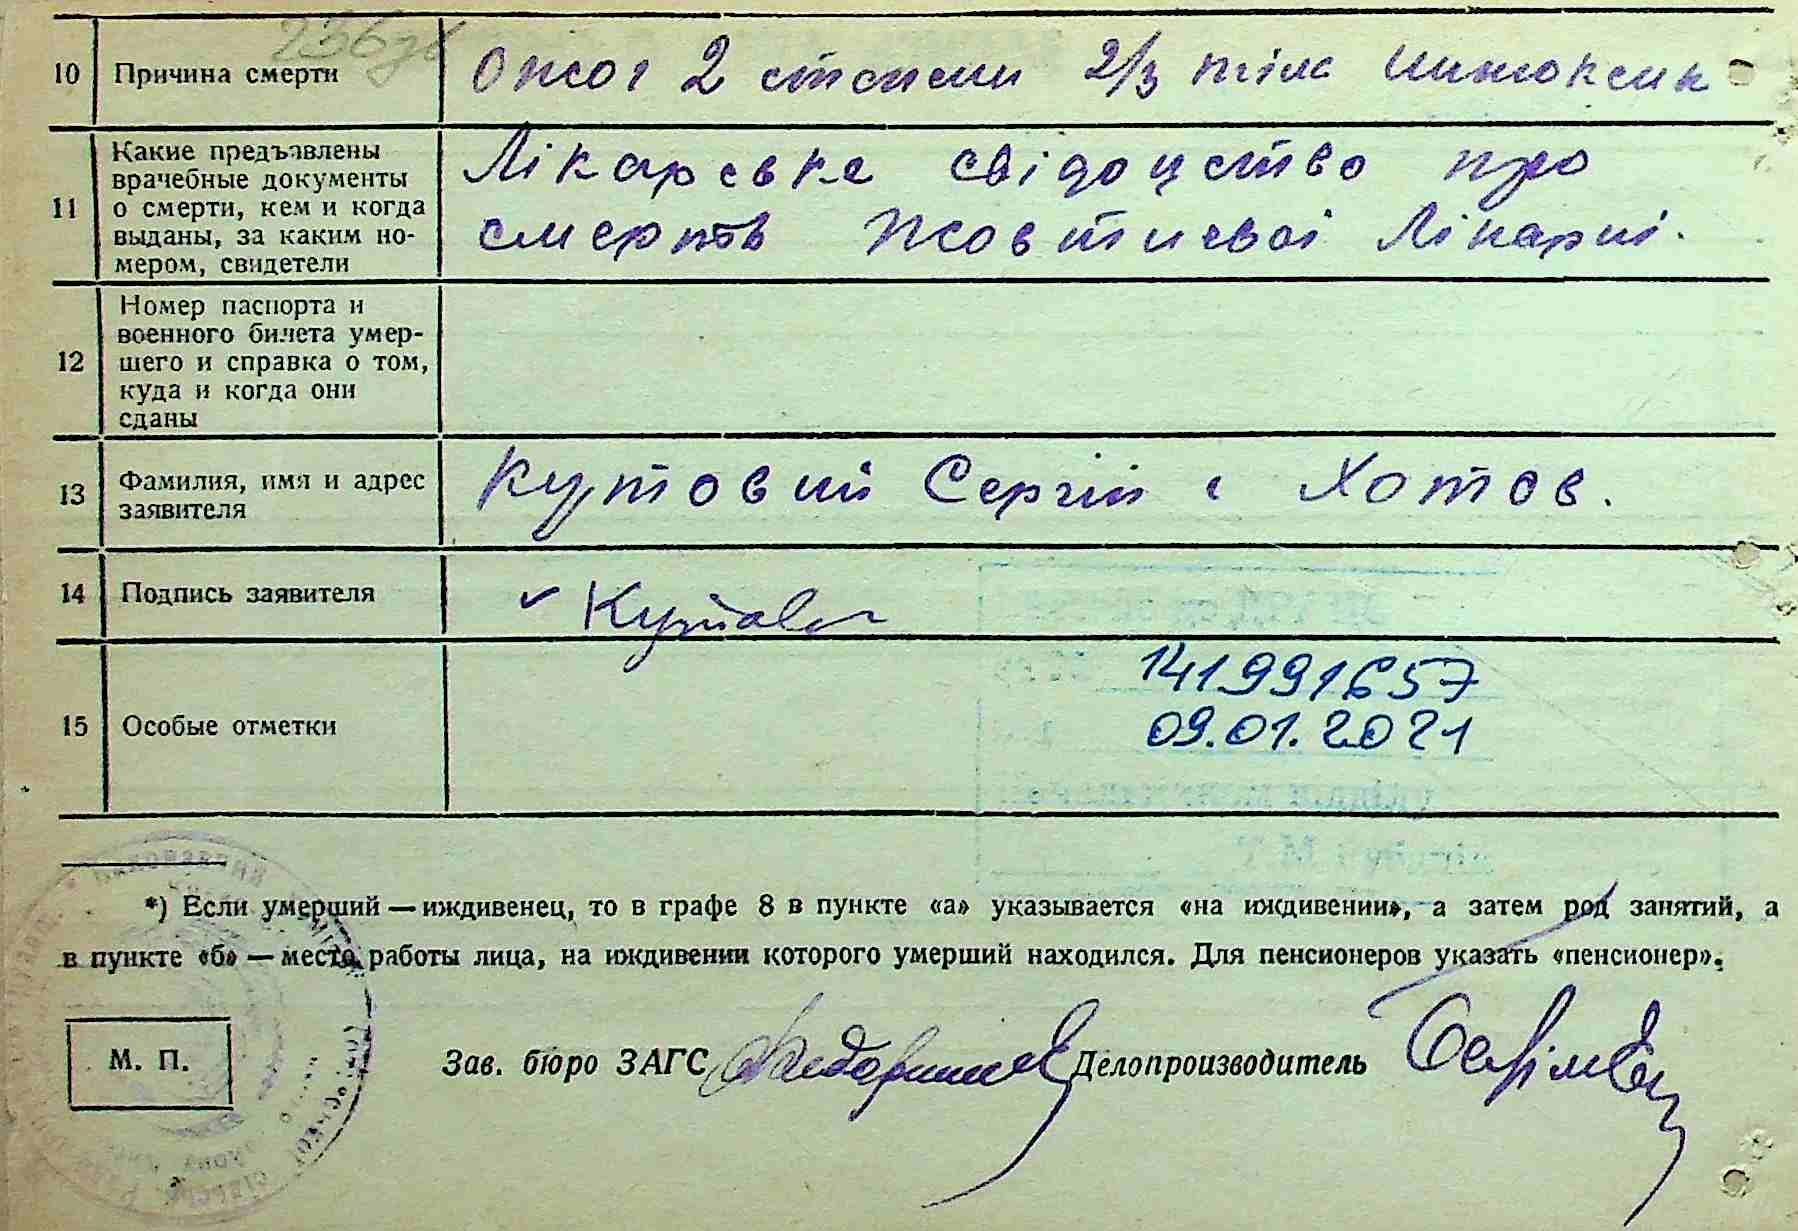 236зв
10 Причина смерти Ожог 2 степени 2/3 тіла
11 Какие предъявлены
врачебные документы
о смерти, кем и когда
выданы, за каким но-
мером, свидетели
Лікарське свідоцтво про
смерть Жовтневої Лікарні.
12 Номер паспорта и
военного билета умер-
шего и справка о том,
куда и когда они
сданы
13 Фамилия, имя и адрес
заявителя
Кутовий Сергій с Хотов.
14 Подпись заявителя
15 Особые отметки
141991657
09.01.2021
*) Если умерший — иждивенец, то в графе 8 в пункте «а» указывается «на иждивении», а затем род занятий, а
в пункте «б» — место работы лица, на иждивении которого умерший находился. Для пенсионеров указать «пенсионер».
М. П.
Зав. бюро ЗАГС Делопроизводитель